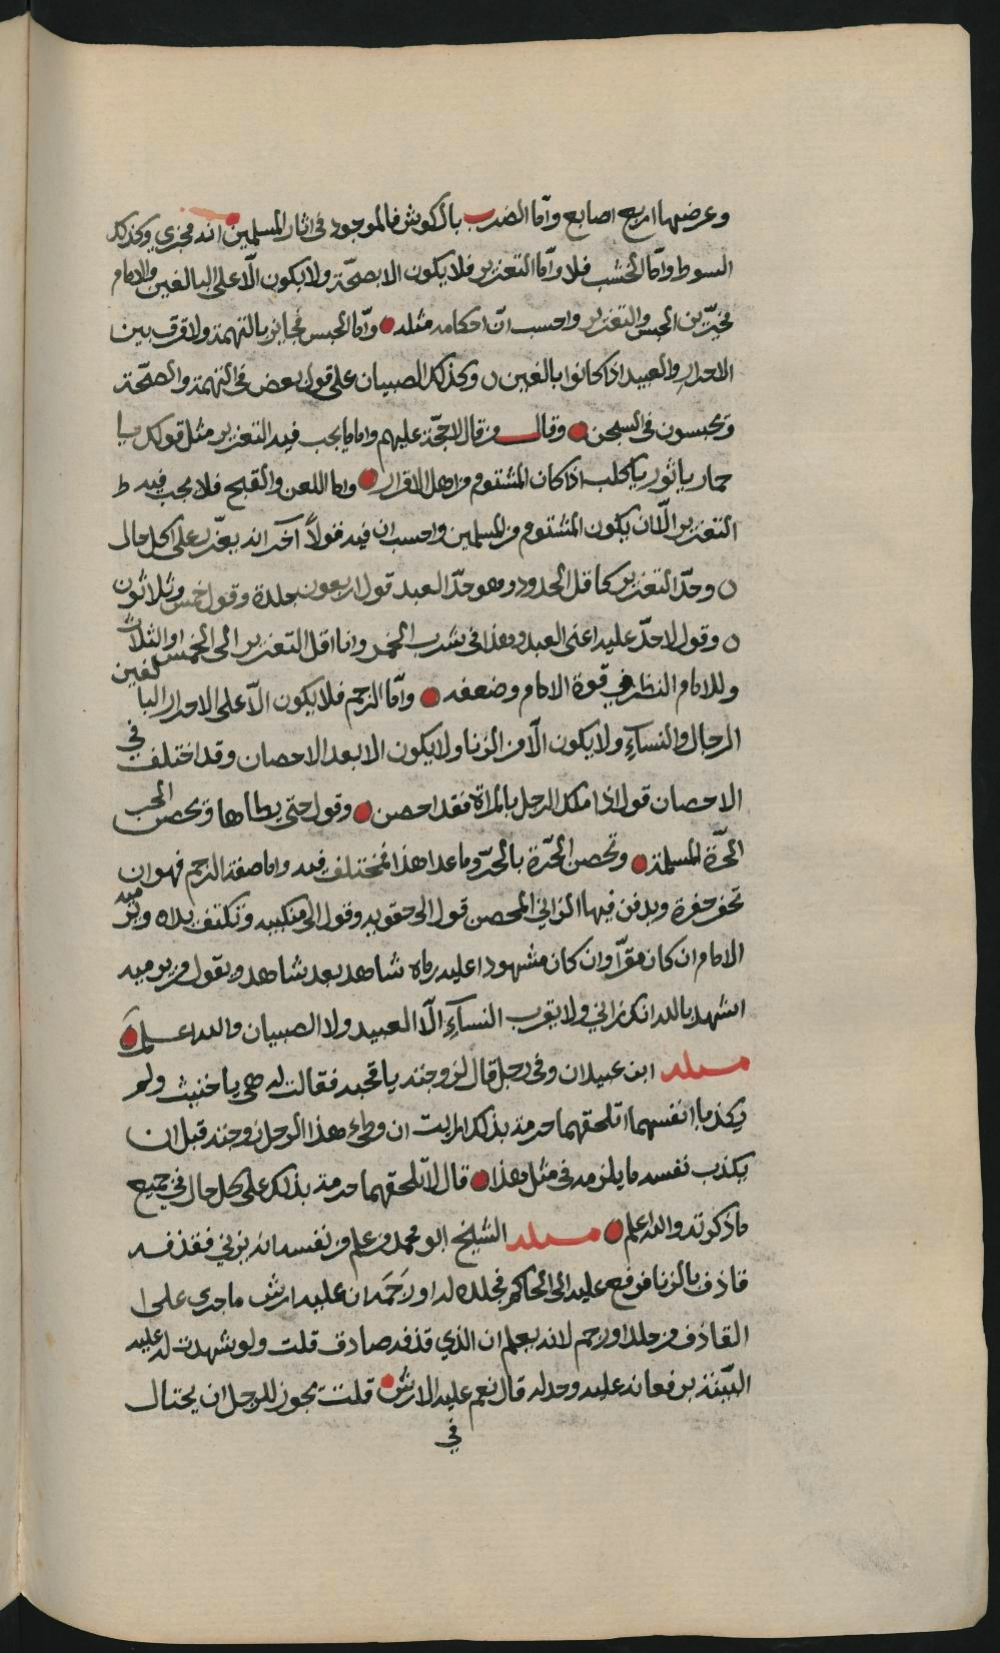 وعرضها اربع اصابع واما الضرب بالكوش فالموجود في اثار المسلمين انه مجزي وكذلك
السوط واما الخشب فلا واما التعزير فلا يكون الا بصحة ولا يكون الا على البالغين والامام
مخير بين الحبس والتعزير واحسب ان احكامه مثله واما الحبس فجايز بالتهمة ولا فرق بين
الاحرار والعبيد اذا كانوا بالغين وكذلك الصبيان على قول بعض في التهمة والصحة
ويحبسون في السجن وقال من قال لا حجة عليهم واما ما يجب فيه التعزير مثل قولك يا
حمار يا ثور يا كلب اذا كان المشتوم من اهل الاقرار واما اللعن والقبح فلا يجب فيه
التعزير الا ان يكون المشتوم من المسلمين واحسب ان فيه قولاً آخر انه يعزر على كل حال
وحد التعزير كاقل الحدود وهو حد العبد قول اربعون جلدة وقول خمس وثلاثون
وقول لا حد عليه اعني العبد وهذا في شرب الخمر واما اقل التعزير الى الخمس او الثلاث
وللامام النظر في قوة الامام وضعفه واما الرجم فلا يكون الا على الاحرار البالغين
الرجال والنساء ولا يكون الا من الزنا ولا يكون الا بعد الاحصان وقد اختلف في
الاحصان قول اذا ملك الرجل بالمراة فقد احصن وقول حتى يطاها وتحصن الحر
الحرة المسلمة وتحصن الحرة بالحر وما عدا هذا فمختلف فيه واما صفة الرجم فهو ان
تحفر حفرة ويدفن فيها الزاني المحصن قول الى حقويه وقول الى منكبيه وتكتف يداه ويرميه
الامام ان كان مقراً وان كان مشهودا عليه رماه شاهد بعد شاهد ويقول من يرميه
اشهد بالله انك زاني ولا يقرب النساء الا العبيد ولا الصبيان والله اعلم
مسلة ابن عبيدان وفي رجل قال لزوجته يا قحبه فقالت له هي يا خنيث ولم
يكذبا انفسهما اتلحقهما حرمة بذلك ارايت ان وطء هذا الرجل زوجته قبل ان
يكذب نفسه ما يلزمه في مثل هذا قال لا تلحقهما حرمة بذلك على كل حال في جميع
ما ذكرته والله اعلم مسلة الشيخ ابو محمد من علم من نفسه انه يزني فقذفه
قاذف بالزنا فرفع عليه الى الحاكم فجلده له او رَجَمَه ان عليه ارش ما جرى على
القاذف من جلد او رجم لانه يعلم ان الذي قذفه صادق قلت ولو شهدت له عليه
البينة برفعانه عليه وحد له قال نعم عليه الارش قلت يجوز للرجل ان يحتال
في